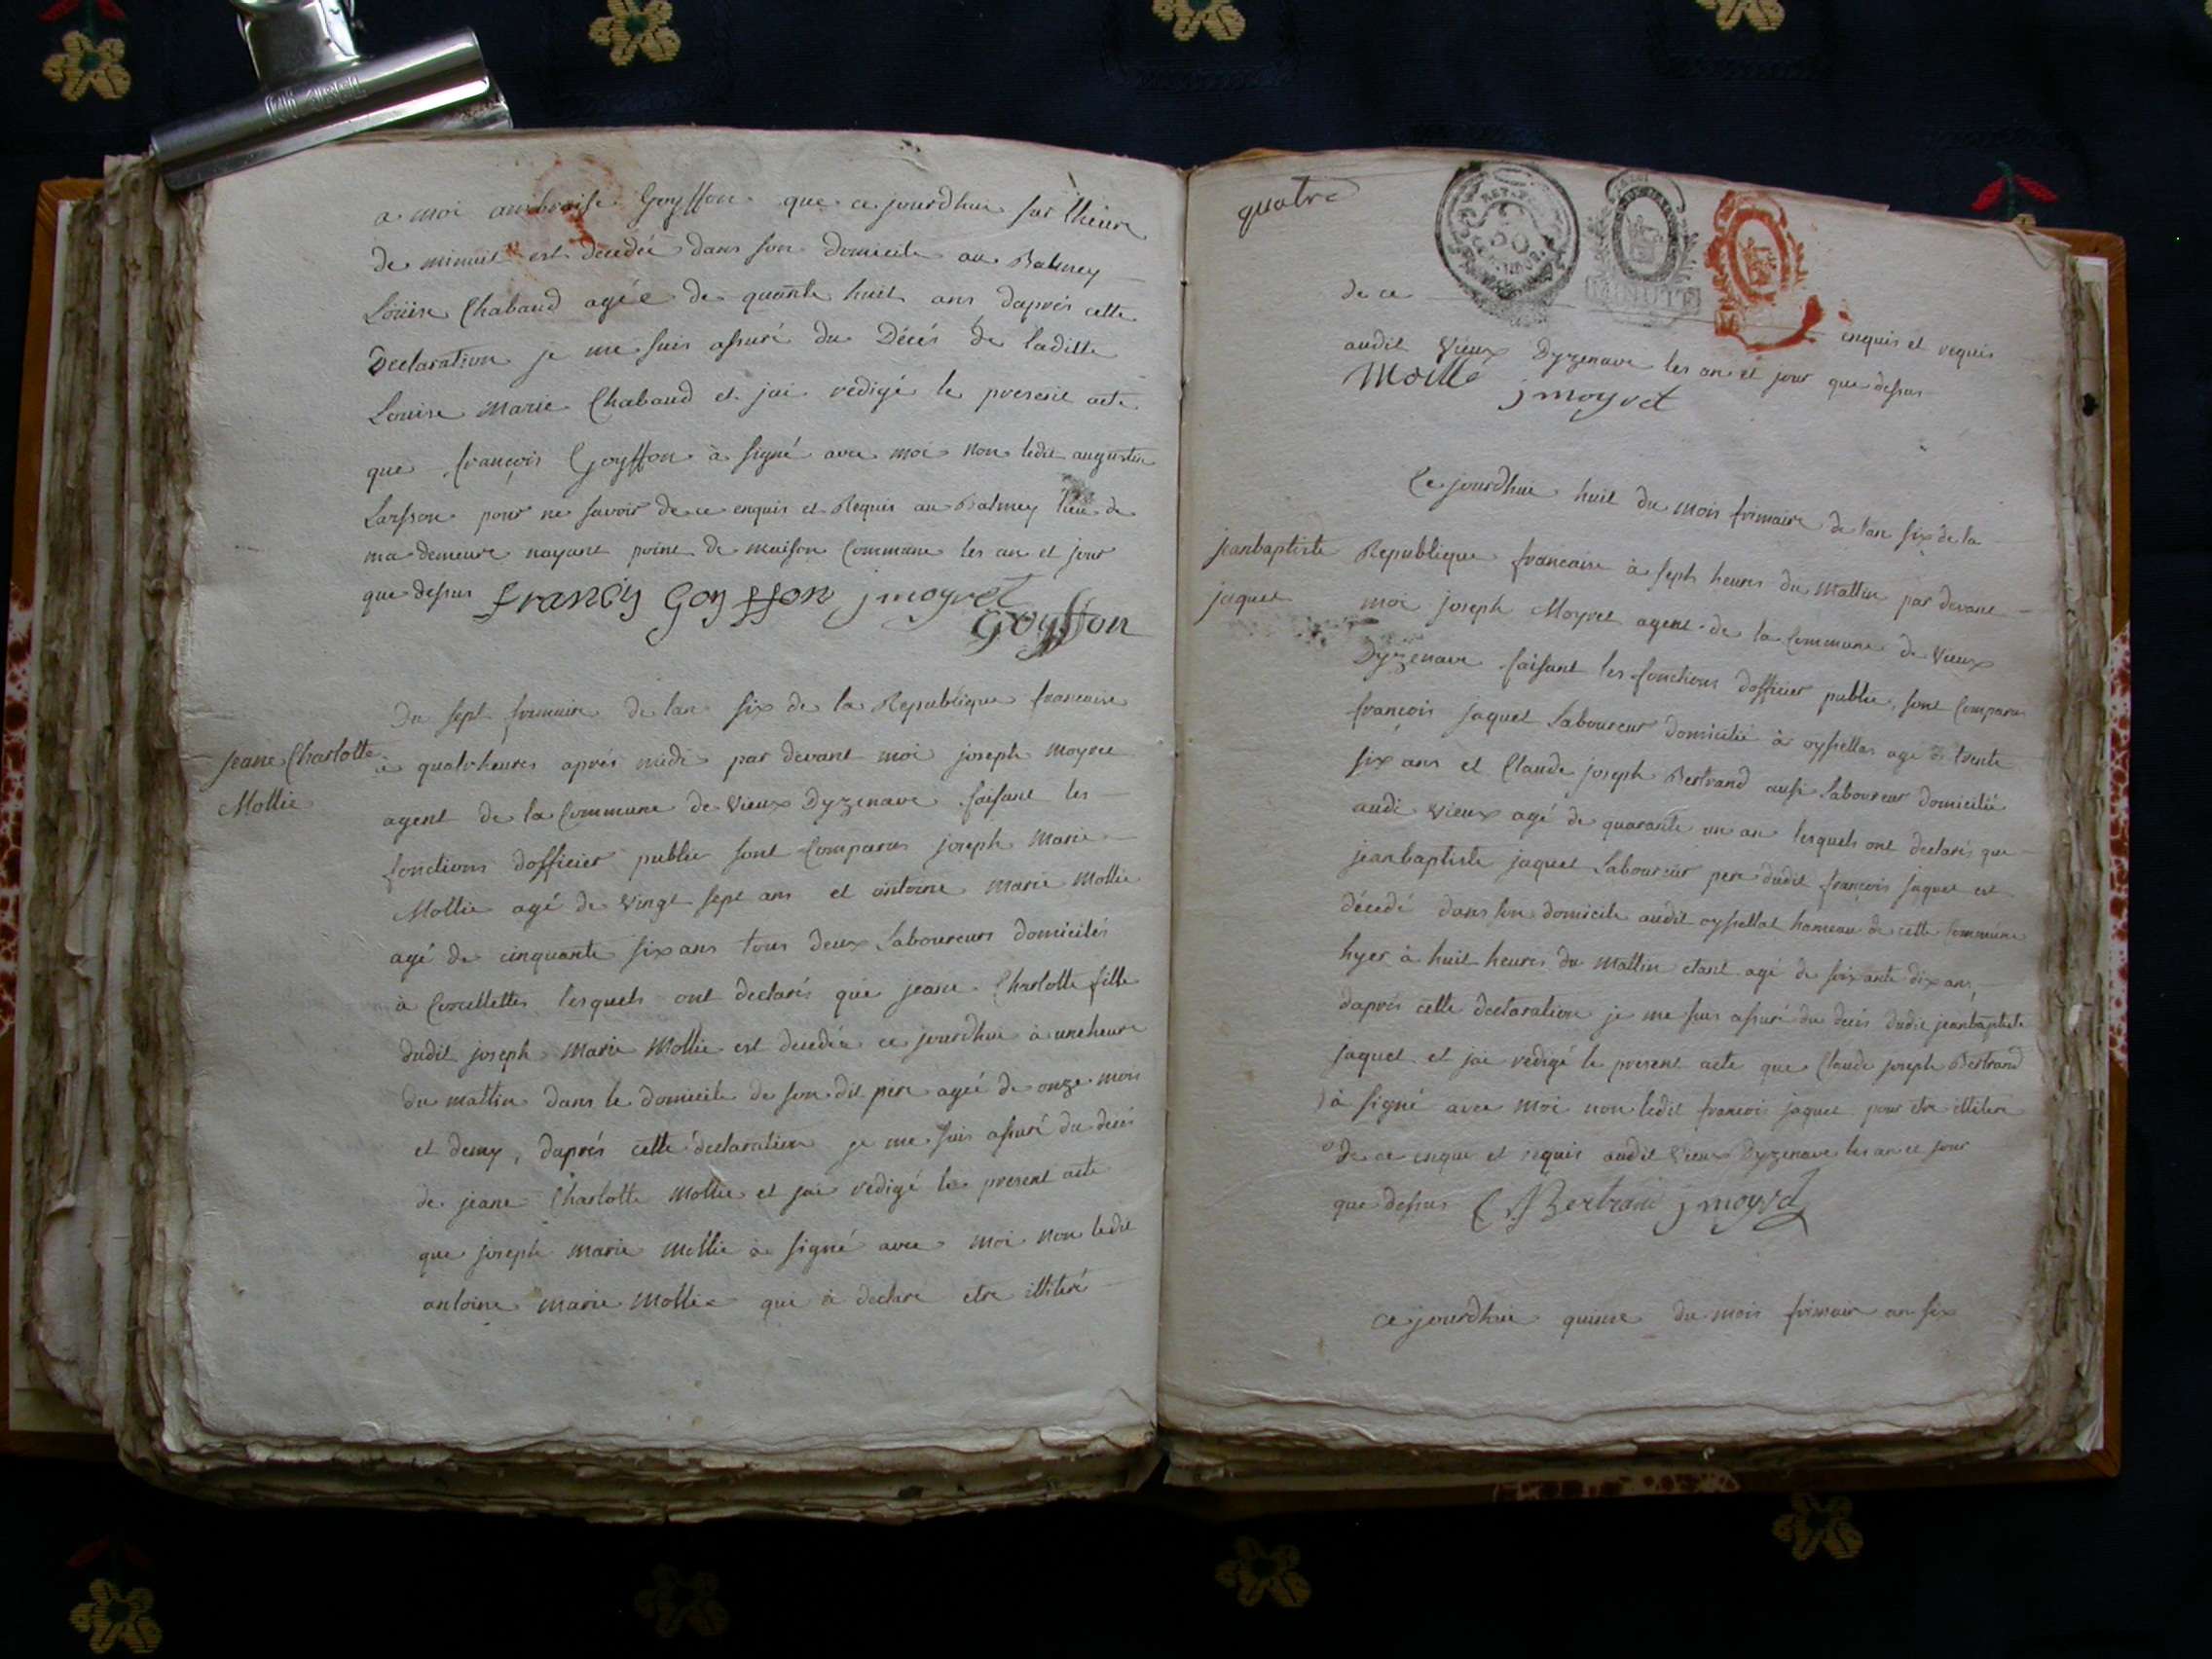 a moi ambroise Goyffon que ce jourdhui sur lheure
de minuit est decedée dans son domicile au Balmey
Loüise Chabaud agée de quarante huit ans daprés cette
Declaration je me suis assuré du Décés de laditte
Louise Marie Chabaud et jai redigé le present acte
que françois Goyffon à signé avec moi non ledit augustin
pour ne savoir de ce enquis et Requis au Balmey lieu de
ma demeure nayant point de maison Commune les an et jour
que dessus francois Goyffon jmoyret
Goyffon
Du sept frimaire de lan six de la Republique francaise
Jeane Charlotte
Mollie
à quatr heures aprés midi par devant moi joseph moyret
agent de la Commune de Vieux Dyzenave faisant les
fonctions dofficier public sont Comparus joseph Marie
Mollie agé de vingt sept ans et antoine Marie Mollie
agé de cinquante six ans tous deux Laboureurs domiciliés
à Corcellettes lesquels ont declarés que jeane Charlotte fille
dudit joseph Marie Mollie est decedée ce jourdhui à une heure
du mattin dans le domicile de son dit pere agée de onze mois
et demy, daprés cette declaration je me suis assuré du décés
de jeane Charlotte Mollie et jai redigé le present acte
que joseph marie mollie à signé avec moi non ledit
antoine marie mollie qui à declaré etre illiteré
quatre
de ce enquis et requis
audit Vieux Dyzenave les an et jour que dessus
Mollie jmoyret
Ce jourdhui huit du mois frimaire de lan six de la
jeanbaptiste
jaquet
Republique francaise à sept heures du mattin par devant
moi joseph Moyret agent de la Commune de Vieux
Dyzenave faisant les fonctions dofficier public, sont Comparus
françois jaquet Laboureur domicilié à oyssellas agé de trente
six ans et Claude joseph Bertrand aussi Laboureur domicilié
audi Vieux agé de quarante un an lesquels ont declarés que
jeanbaptiste jaquet Laboureur pere dudit françois jaquet est
décedé dans son domicile audit oyssellas hameau de cette Commune
hyer à huit heures du mattin etant agé de soixante dix ans,
daprés cette declaration je me suis assuré du decés dudit jeanbaptiste
jaquet et jai redigé le present acte que Claude joseph Bertrand
à signé avec moi non ledit francois jaquet pour etre illiteré
de ce enquis et requis audit Vieux Dyzenave les an et jour
que dessus C J Bertrand jmoyret
ce jourdhui quinze du mois frimair an six